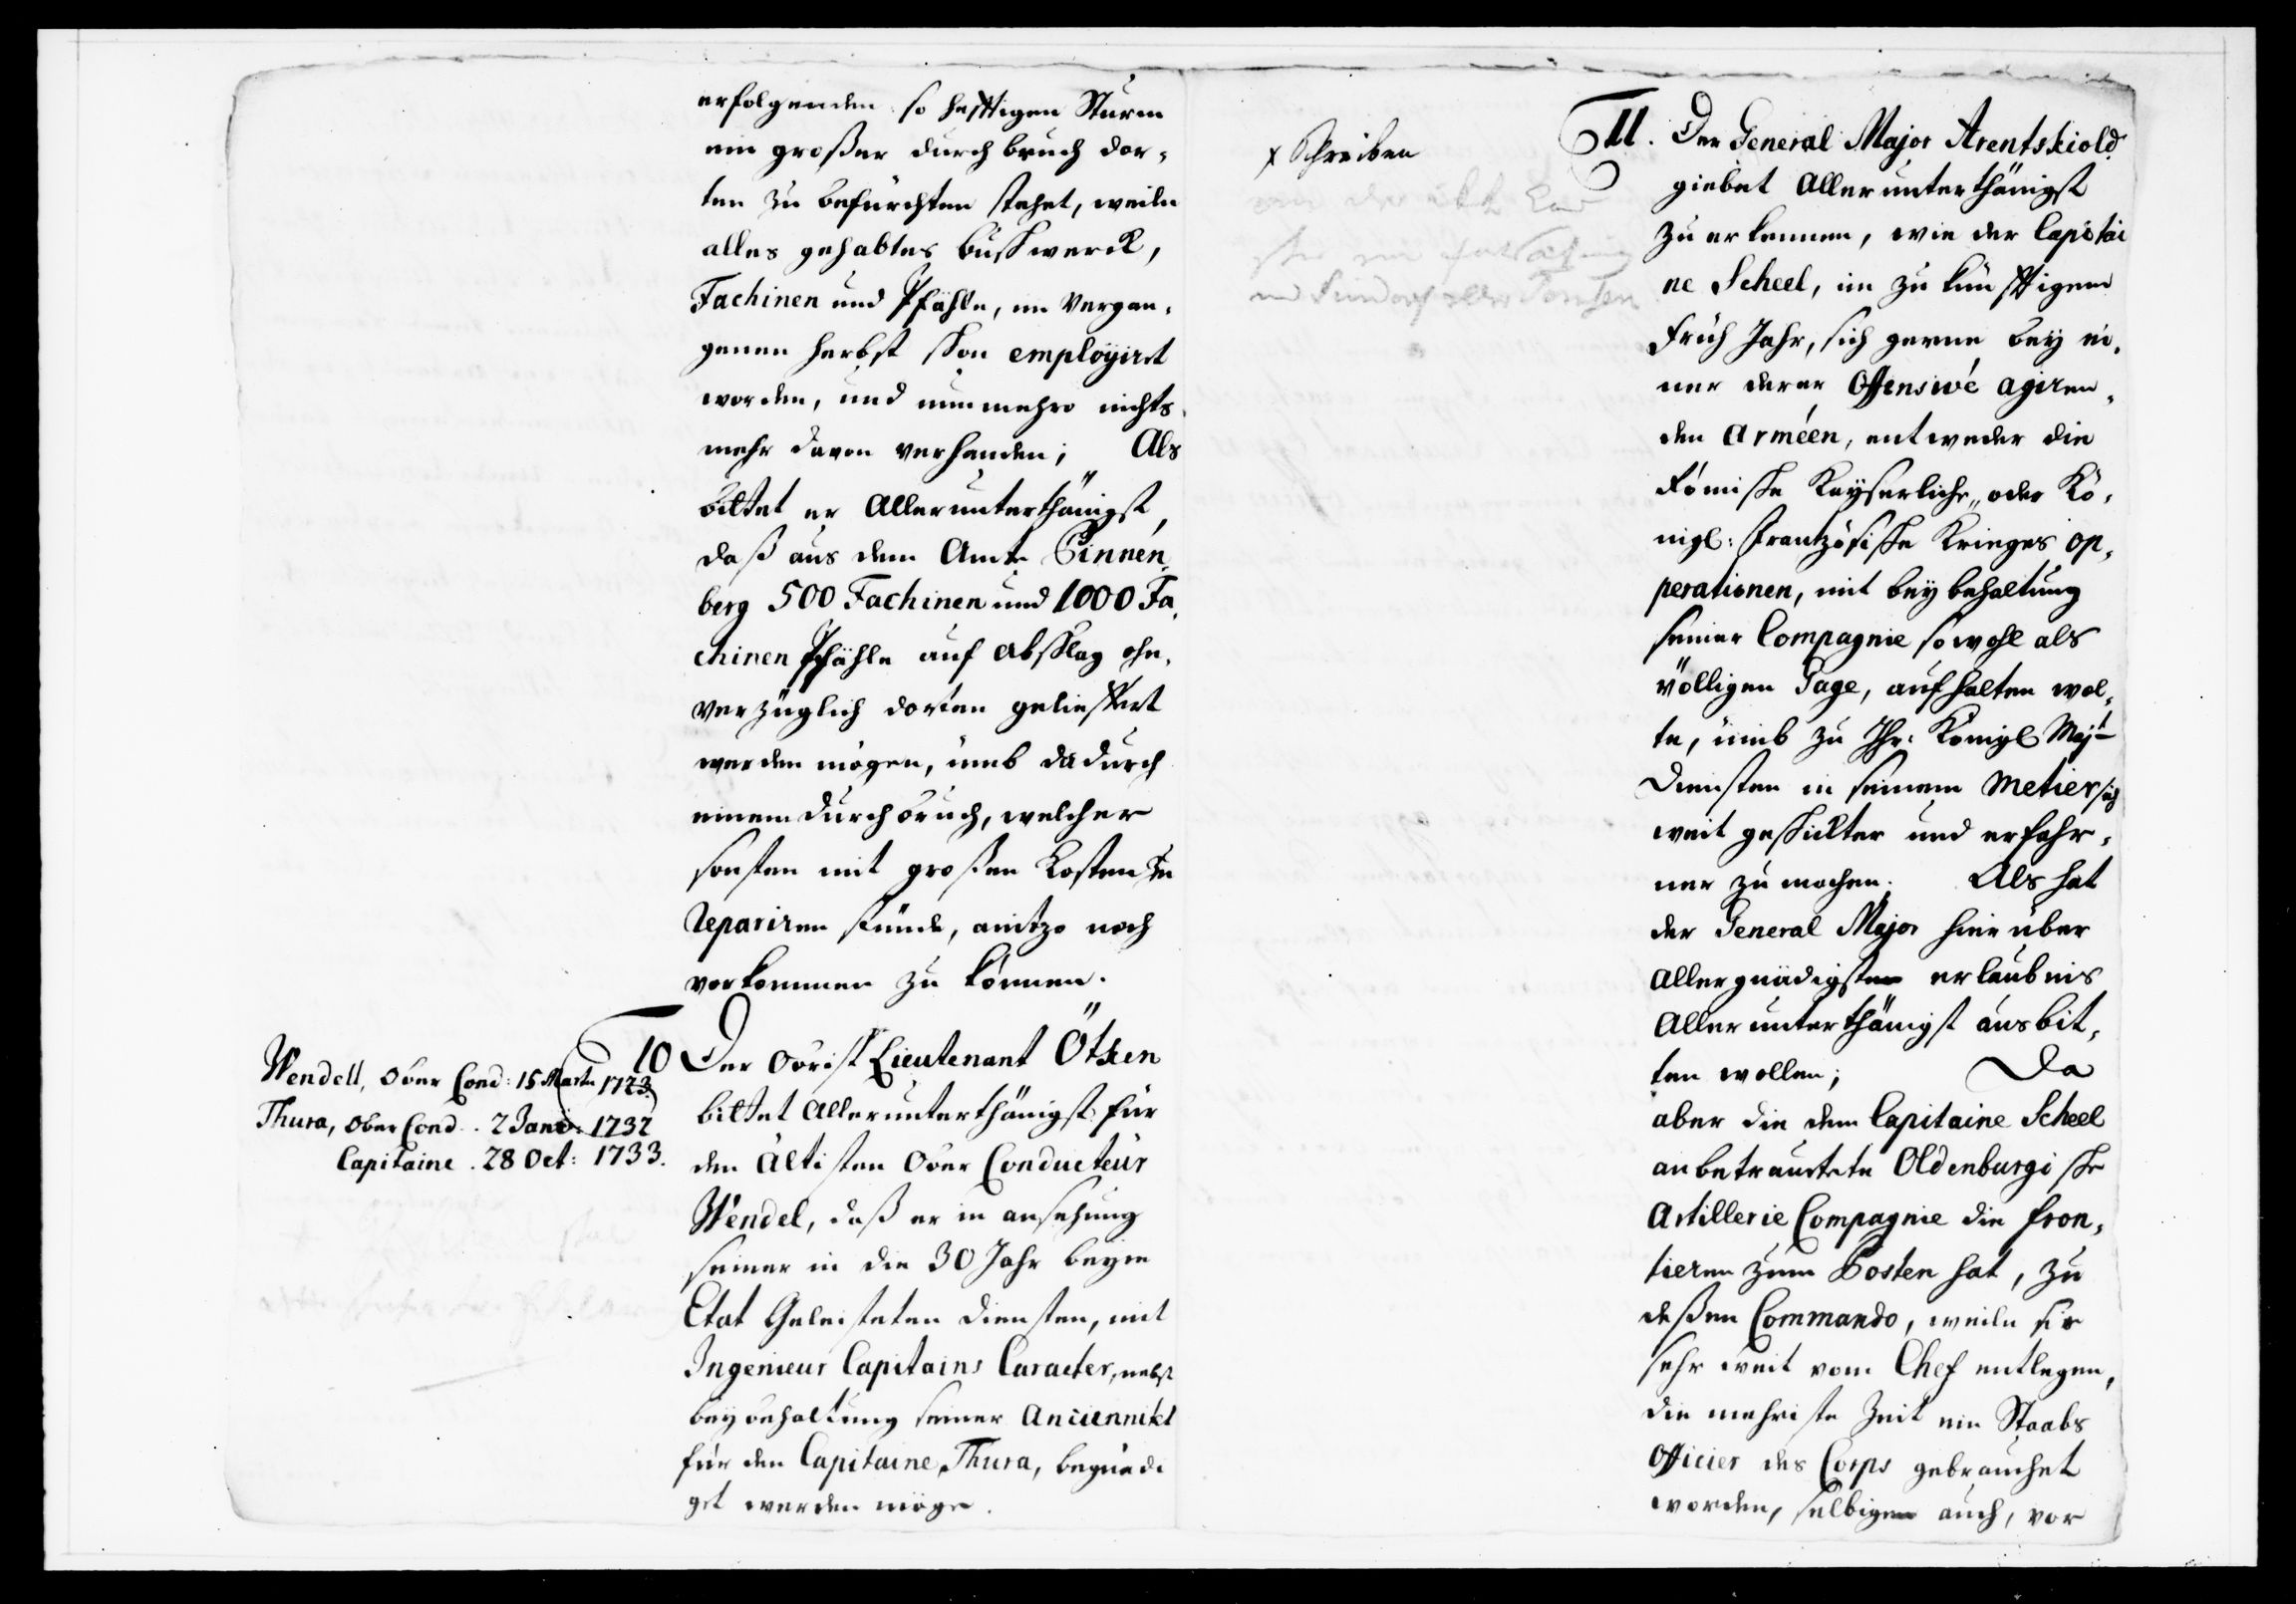 erfolgenden so hefftigen Sturm
ein großer durchbruch dor-
ten zu befürchten stehet, weiln
alles gehabtes buschwerck,
Fachinen und Pfähle, im Vergan-
genen herbst schon employiret
worden, und nunmehro nichts
mehr davon verhanden; Als
bittet er Allerunterthänigst,
daß aus dem Amte Pinnen-
berg 500 Fachinen und 1000 Fa-
chinen Pfähle auf Abschlag ohn-
verzüglich dorten geliefert
werden mögen, umb dadurch
einem durchbruch, welcher
sonsten mit großen Kosten zu
repariren stünde, anitzo noch
vorkommen zu können.
Wendell, Ober Cond: 15 Marty 1723.
Thura, Ober Cond. 2 Janu: 1732
Capitaine. 28 Oct: 1733.
10 Der Obrist Lieutenant Ötken
bittet Allerunterthänigst für
den Ältisten Ober Conducteur
Wendel, daß er in ansehung
seiner in die 30 Jahr beym
Etat Geleisteten diensten, mit
Ingenieur Capitains Caracter, nebst
beybehaltung seiner Anciennitet
für den Capitaine Thura, begnadi
get werden möge.
x Schreiben
11. Der General Major Arentskiold
giebet Allerunterthänigst
zu erkennen, wie der Capitai
ne Scheel, im zukünfftigem
Früh Jahr, sich gerne bey ei-
ner derer Offensivé agiren-
den Arméen, entweder die
Römische Kayserliche, oder Kö-
nigl: Frantzösische Krieges op-
perationen, mit beybehaltung
seiner Compagnie sowohl als
völligen Gage, aufhalten wol-
te, umb zu Ihr: Königl Majt
Diensten in seinem Metier sich
weit geschickter und erfahr-
ner zu machen. Als hat
der General Major hierüber
Allergnädigste erlaubnis
Allerunterthänigst ausbit-
ten wollen; Da
aber die dem Capitaine Scheel
anbetrauete Oldenburgische
Artillerie Compagnie die Fron-
tieren zum Posten hat, zu
deßen Commando, weiln sie
sehr weit vom Chef entlegen,
die mehriste Zeit ein Staabs
Officier des Corps gebrauchet
worden, selbige auch, vor